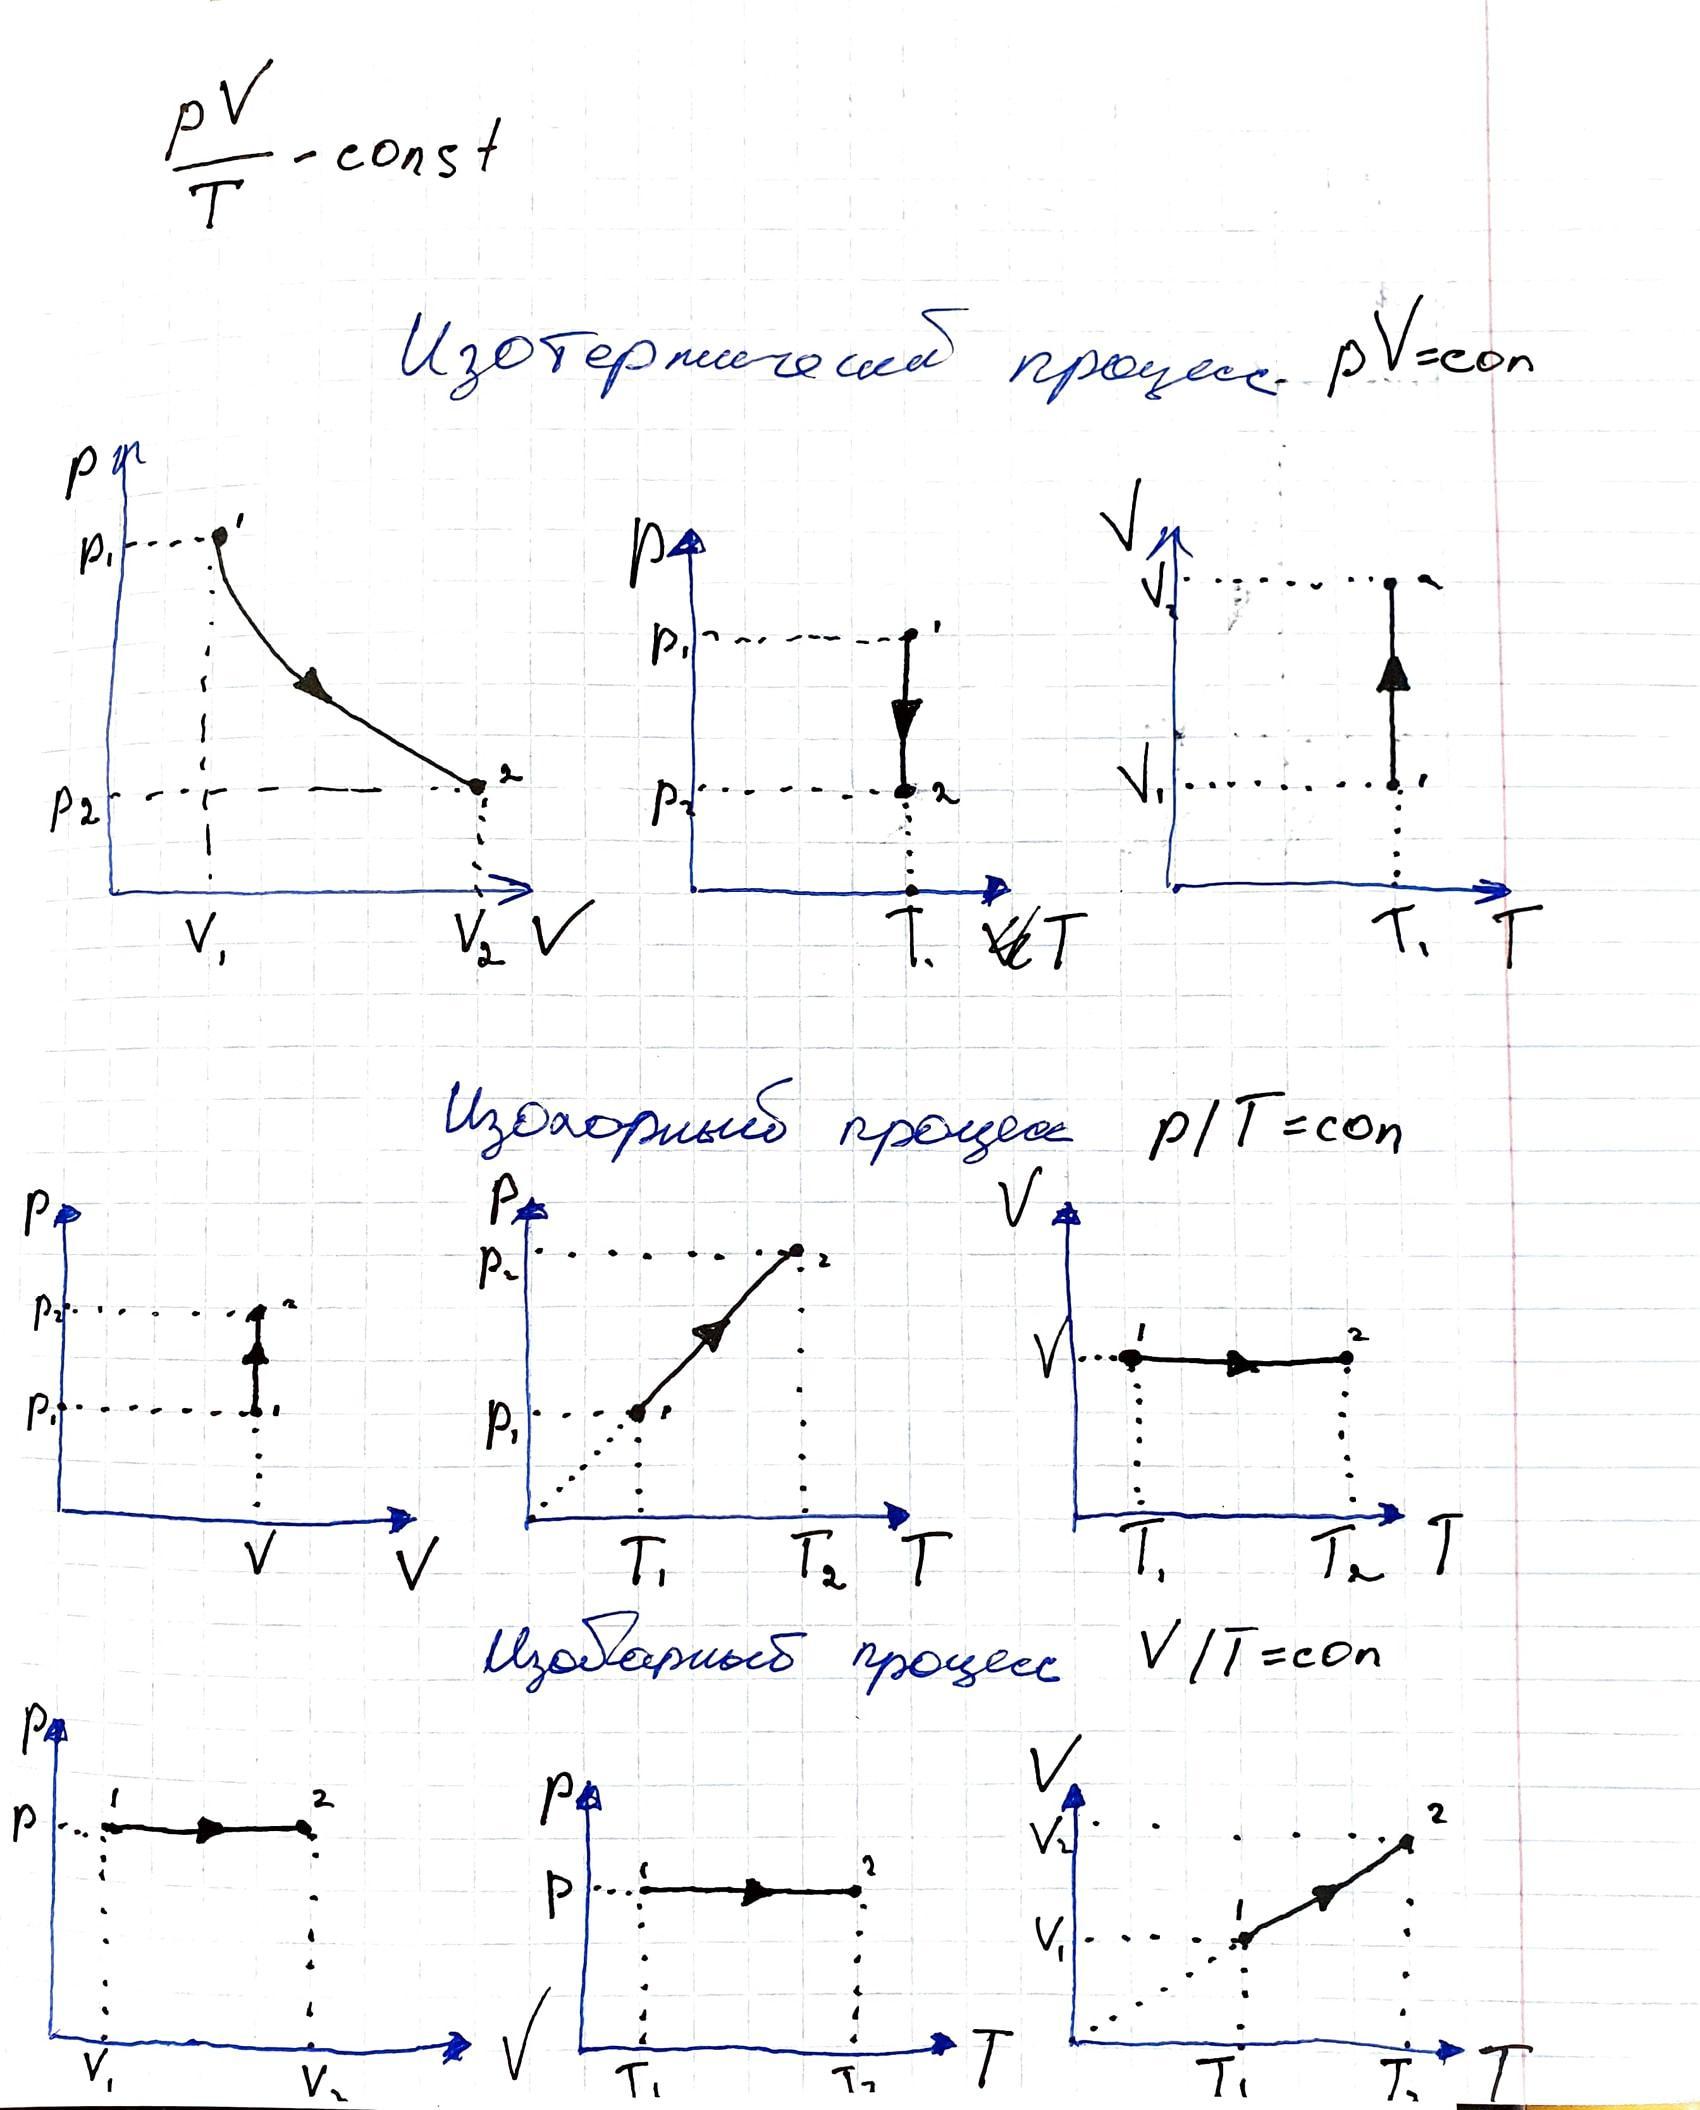 pV
/T - const
Изотермический процесс pV=con
p
p₁
1
2
p₂
V₁
V₂
V
p
p₁
1
p₂
2
T₁
T
V
V₂
2
V₁
1
T₁
T
Изохорный процесс p/T=con
p
p₂
2
p₁
1
V
V
p
p₂
2
p₁
1
T₁
T₂
T
V
V
1
2
T₁
T₂
T
Изобарный процесс V/T=con
p
p
1
2
V₁
V₂
V
p
p
1
2
T₁
T₂
T
V
V₂
2
V₁
1
T₁
T₂
T